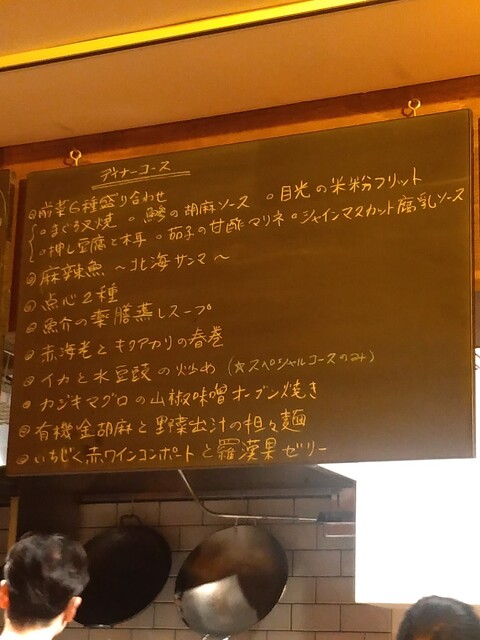 ディナーコース
◎前菜6種盛り合わせ
○まぐろ叉焼 ○鯵の胡麻ソース ○目光の米粉フリット
○押し豆腐と木耳 ○茄子の甘酢マリネ ○シャインマスカット腐乳ソース
◎麻辣魚 〜北海サンマ〜
◎点心2種
◎魚介の薬膳蒸しスープ
◎赤海老とキタアカリの春巻
◎イカと水豆豉の炒め (☆スペシャルコースのみ)
◎カジキマグロの山椒味噌オーブン焼き
◎有機金胡麻と野菜出汁の担々麺
◎いちじく赤ワインコンポートと羅漢果ゼリー